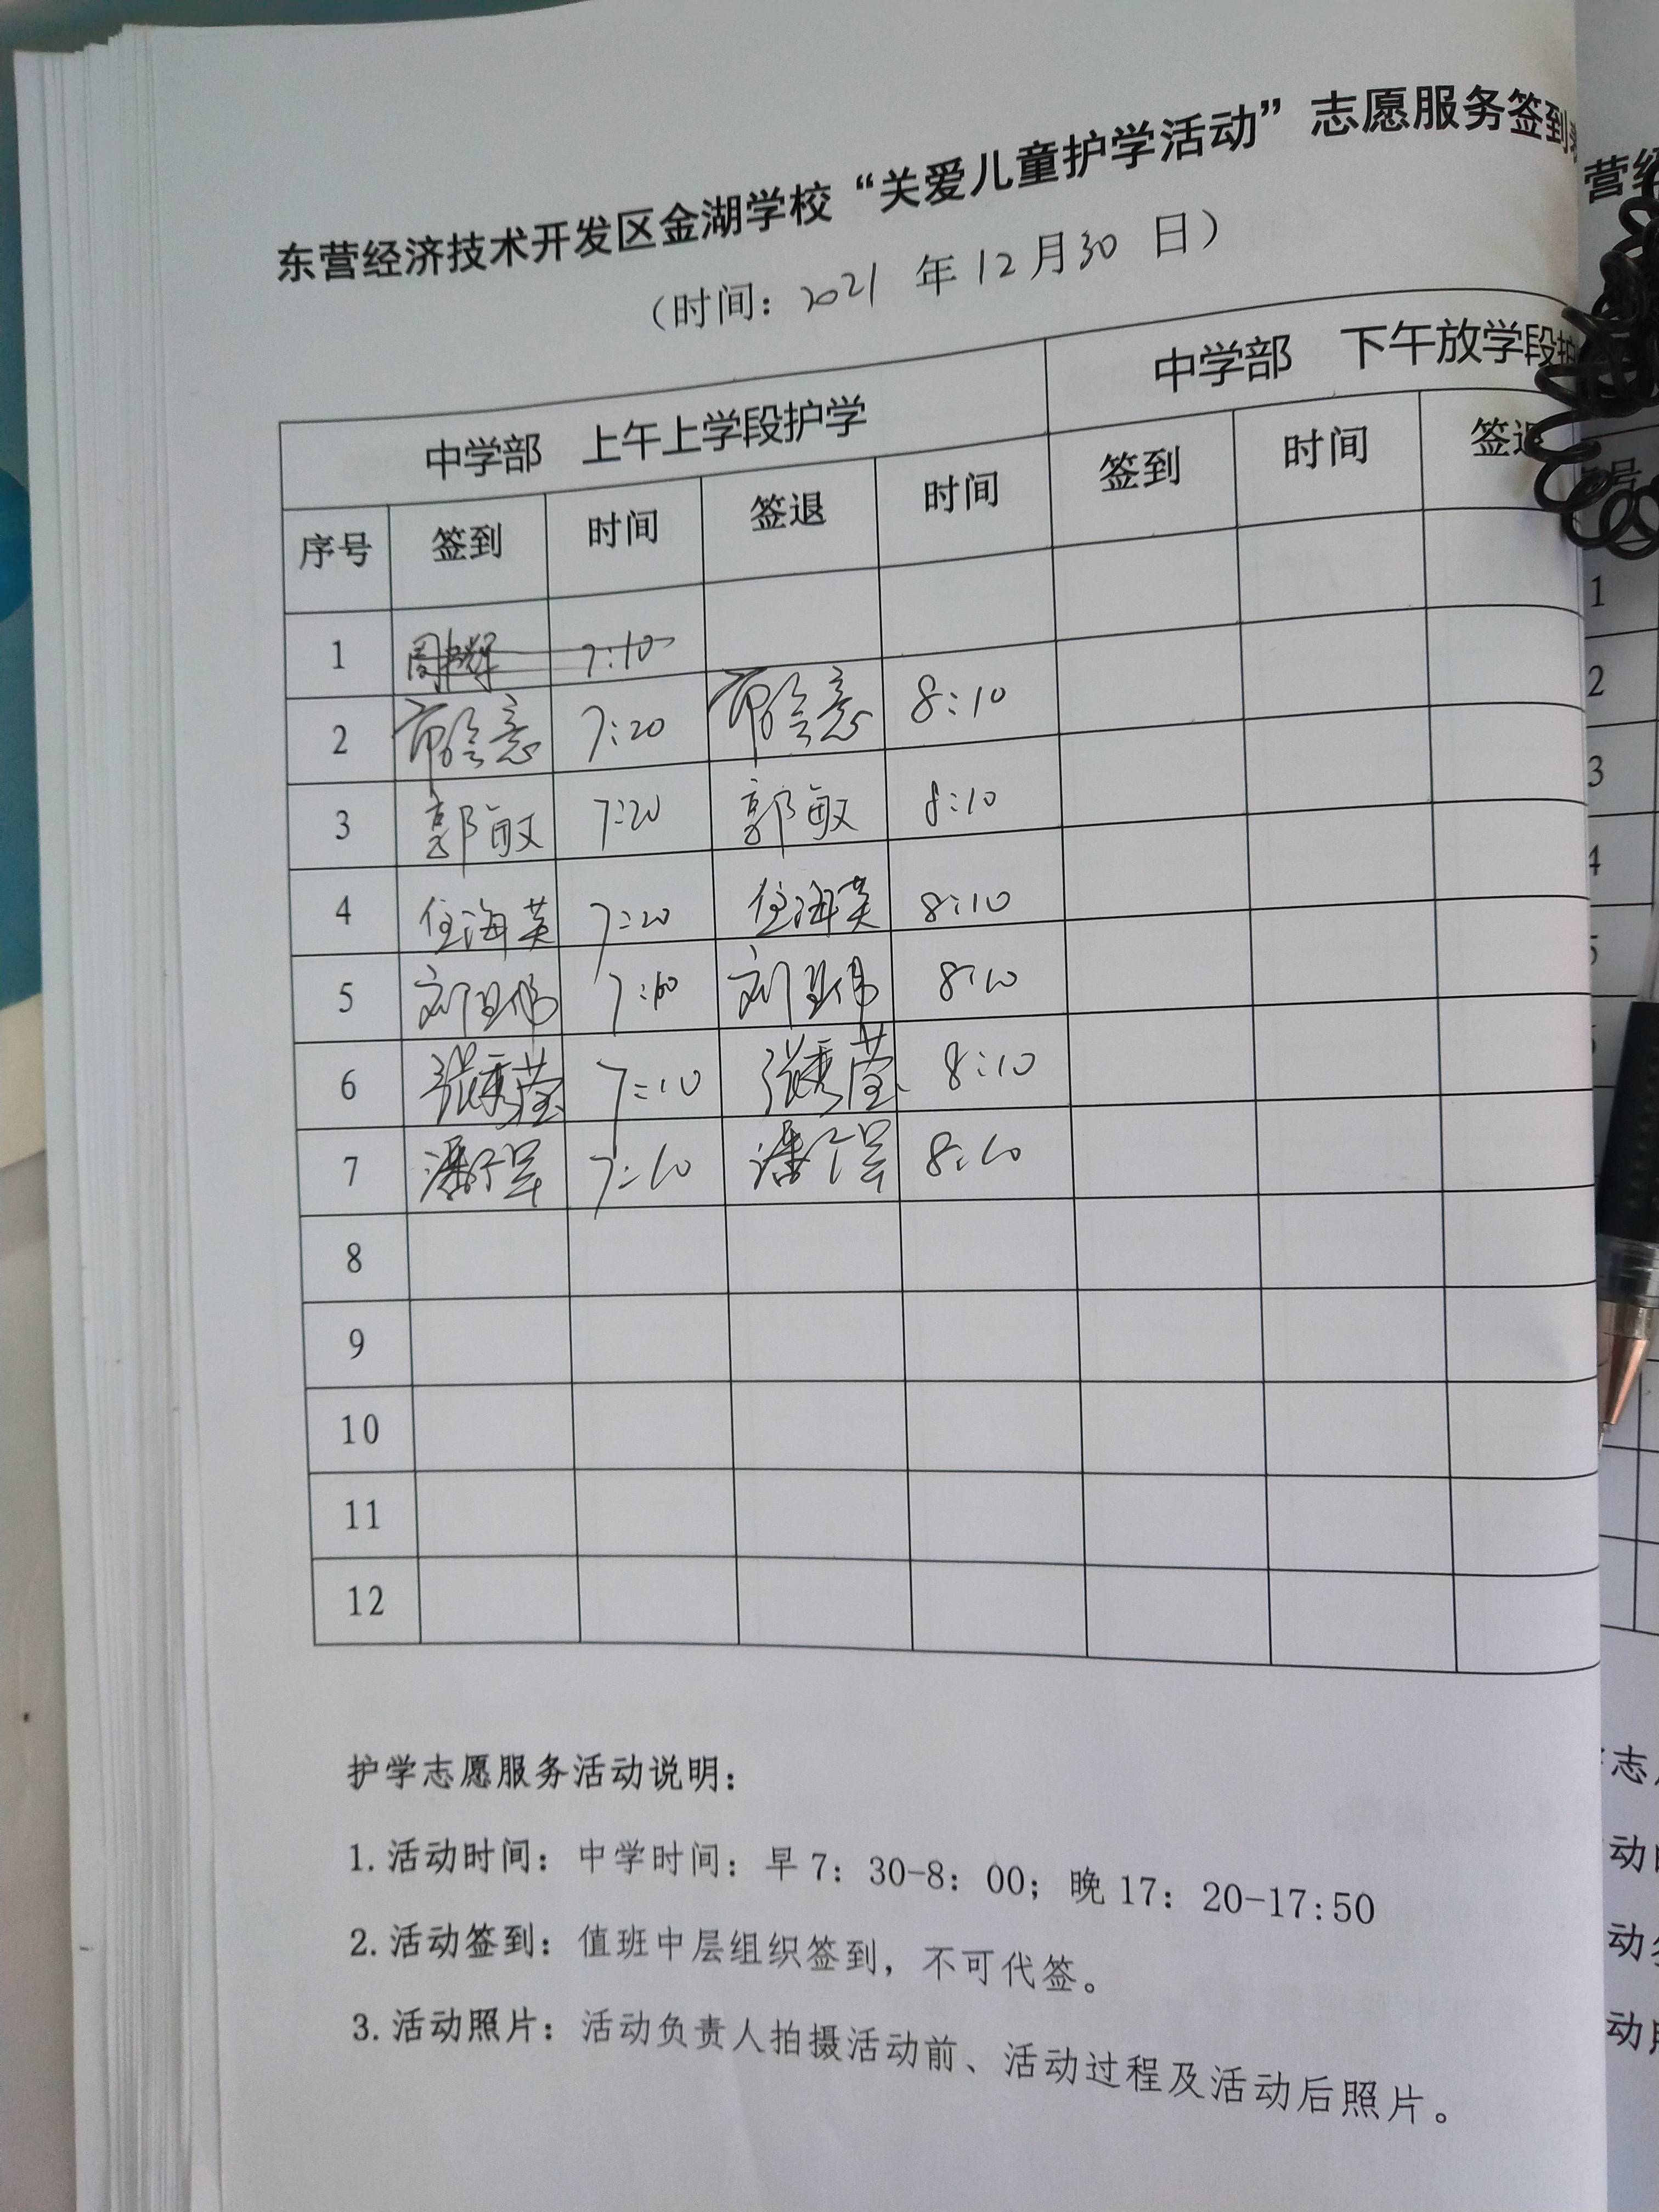 东营经济技术开发区金湖学校“关爱儿童护学活动”志愿服务签到
（时间：2021 年 12 月 30 日）
中学部 上午上学段护学 中学部 下午放学段
序号 签到 时间 签退 时间 签到 时间 签退
1 7:10
2 7:20 8:10
3 郭敏 7:20 郭敏 8:10
4 任海英 7:20 任海英 8:10
5 8:10
6 张秀莹 7:10 张秀莹 8:10
7 7:10 8:10
8
9
10
11
12
护学志愿服务活动说明：
1.活动时间：中学时间：早 7：30-8：00；晚 17：20-17:50
2.活动签到：值班中层组织签到，不可代签。
3.活动照片：活动负责人拍摄活动前、活动过程及活动后照片。
营
1
2
3
4
志
动
动
动